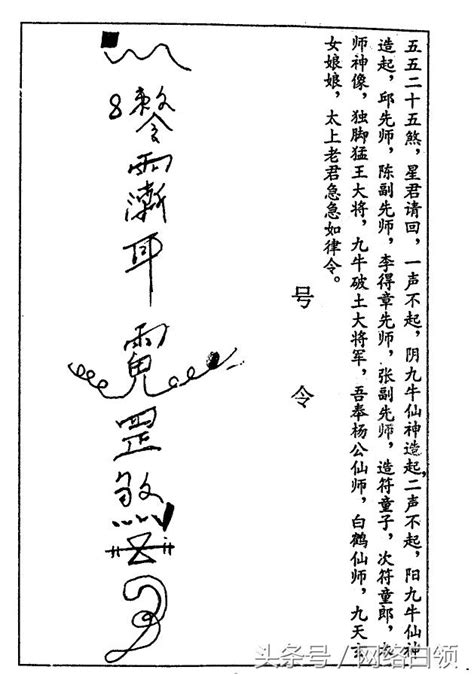 五五二十五煞，星君请回，一声不起，阴九牛仙神造起，二声不起，阳九牛仙神
造起，邱先师，陈副先师，李得章先师，张副先师，造符童子，次符童郎，
师神像，独脚猛王大将，九牛破土大将军，吾奉杨公仙师，白鹤仙师，九天玄
女娘娘，太上老君急急如律令。
号令
耳
罡
煞
头条号/网络白领